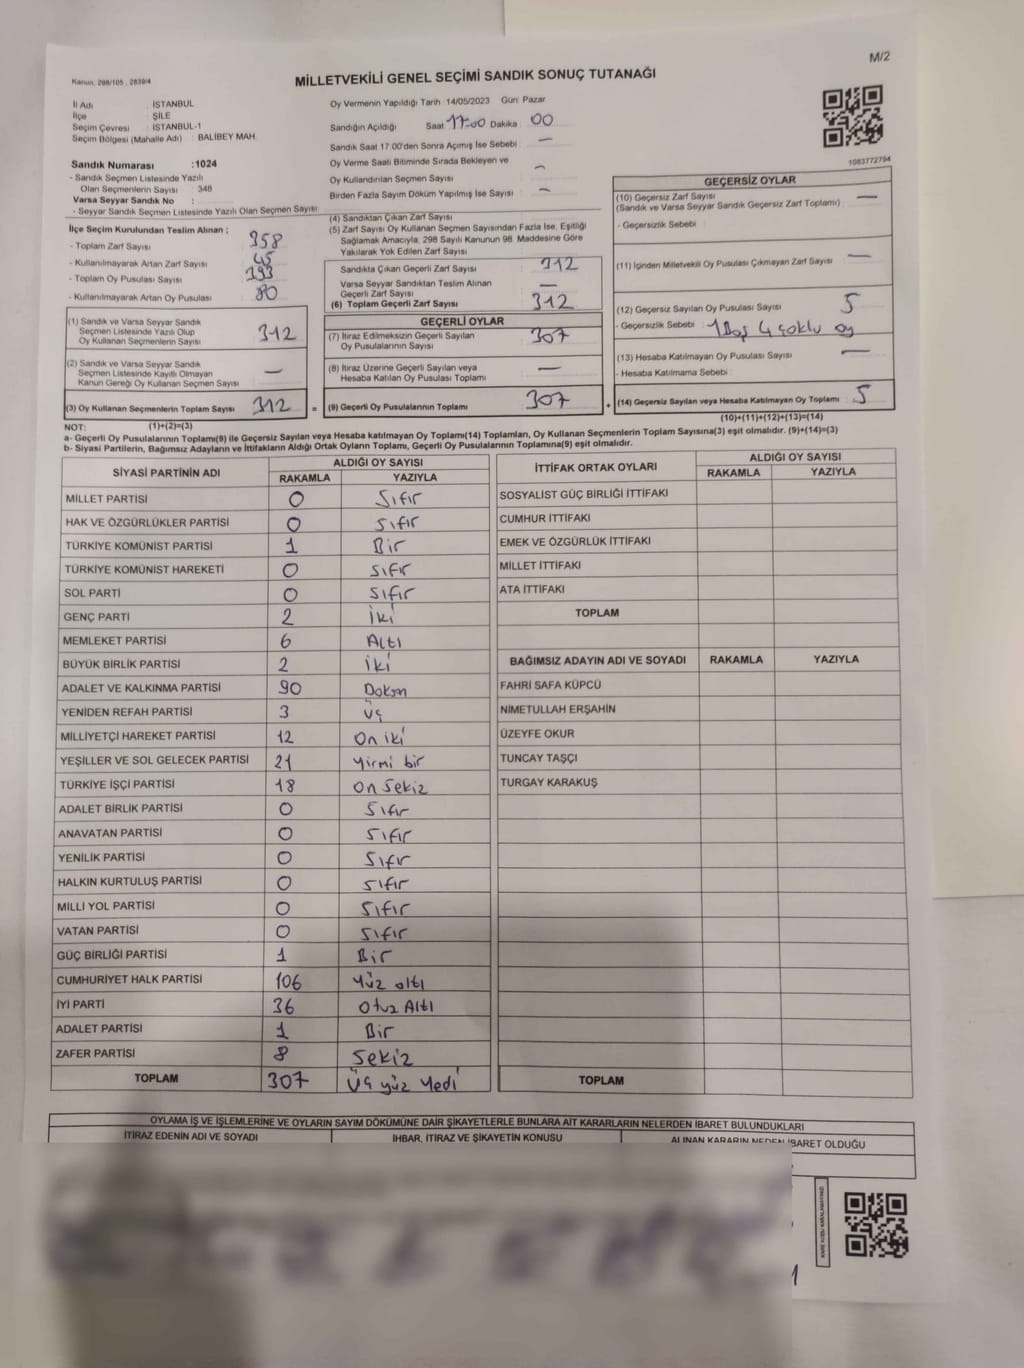 M/2
Kanun: 298/105, 2839/4
MİLLETVEKİLİ GENEL SEÇİMİ SANDIK SONUÇ TUTANAĞI
İl Adı : İSTANBUL
İlçe : ŞİLE
Seçim Çevresi : İSTANBUL-1
Seçim Bölgesi (Mahalle Adı) : BALİBEY MAH.
Sandık Numarası :1024
- Sandık Seçmen Listesinde Yazılı
Olan Seçmenlerin Sayısı : 348
Varsa Seyyar Sandık No :
- Seyyar Sandık Seçmen Listesinde Yazılı Olan Seçmen Sayısı:
İlçe Seçim Kurulundan Teslim Alınan ;
- Toplam Zarf Sayısı : 358
- Kullanılmayarak Artan Zarf Sayısı : 45
- Toplam Oy Pusulası Sayısı : 393
- Kullanılmayarak Artan Oy Pusulası : 80
(1) Sandık ve Varsa Seyyar Sandık
Seçmen Listesinde Yazılı Olup
Oy Kullanan Seçmenlerin Sayısı : 312
(2) Sandık ve Varsa Seyyar Sandık
Seçmen Listesinde Kayıtlı Olmayan
Kanun Gereği Oy Kullanan Seçmen Sayısı : —
(3) Oy Kullanan Seçmenlerin Toplam Sayısı : 312 =
(1)+(2)=(3)
Oy Vermenin Yapıldığı Tarih : 14/05/2023 Gün: Pazar
Sandığın Açıldığı Saat 17:00 Dakika : 00
Sandık Saat 17:00'den Sonra Açılmış İse Sebebi : —
Oy Verme Saati Bitiminde Sırada Bekleyen ve
Oy Kullandırılan Seçmen Sayısı : —
Birden Fazla Sayım Döküm Yapılmış İse Sayısı : —
(4) Sandıktan Çıkan Zarf Sayısı
(5) Zarf Sayısı Oy Kullanan Seçmen Sayısından Fazla İse, Eşitliği
Sağlamak Amacıyla, 298 Sayılı Kanunun 98. Maddesine Göre
Yakılarak Yok Edilen Zarf Sayısı :
Sandıkta Çıkan Geçerli Zarf Sayısı : 312
Varsa Seyyar Sandıktan Teslim Alınan
Geçerli Zarf Sayısı : —
(6) Toplam Geçerli Zarf Sayısı : 312
GEÇERLİ OYLAR
(7) İtiraz Edilmeksizin Geçerli Sayılan
Oy Pusulalarının Sayısı : 307
(8) İtiraz Üzerine Geçerli Sayılan veya
Hesaba Katılan Oy Pusulası Toplamı : —
(9) Geçerli Oy Pusulalarının Toplamı : 307 +
1083772794
GEÇERSİZ OYLAR
(10) Geçersiz Zarf Sayısı : —
(Sandık ve Varsa Seyyar Sandık Geçersiz Zarf Toplamı)
- Geçersizlik Sebebi :
(11) İçinden Milletvekili Oy Pusulası Çıkmayan Zarf Sayısı : —
(12) Geçersiz Sayılan Oy Pusulası Sayısı : 5
- Geçersizlik Sebebi : 1 Boş 4 çoklu oy
(13) Hesaba Katılmayan Oy Pusulası Sayısı : —
- Hesaba Katılmama Sebebi :
(14) Geçersiz Sayılan veya Hesaba Katılmayan Oy Toplamı : 5
(10)+(11)+(12)+(13)=(14)
NOT:
a- Geçerli Oy Pusulalarının Toplamı(9) ile Geçersiz Sayılan veya Hesaba katılmayan Oy Toplamı(14) Toplamları, Oy Kullanan Seçmenlerin Toplam Sayısına(3) eşit olmalıdır. (9)+(14)=(3)
b- Siyasi Partilerin, Bağımsız Adayların ve İttifakların Aldığı Ortak Oyların Toplamı, Geçerli Oy Pusulalarının Toplamına(9) eşit olmalıdır.
SİYASİ PARTİNİN ADI ALDIĞI OY SAYISI
RAKAMLA YAZIYLA
MİLLET PARTİSİ 0 Sıfır
HAK VE ÖZGÜRLÜKLER PARTİSİ 0 Sıfır
TÜRKİYE KOMÜNİST PARTİSİ 1 Bir
TÜRKİYE KOMÜNİST HAREKETİ 0 Sıfır
SOL PARTİ 0 Sıfır
GENÇ PARTİ 2 iki
MEMLEKET PARTİSİ 6 Altı
BÜYÜK BİRLİK PARTİSİ 2 iki
ADALET VE KALKINMA PARTİSİ 90 Doksn
YENİDEN REFAH PARTİSİ 3 üç
MİLLİYETÇİ HAREKET PARTİSİ 12 On iki
YEŞİLLER VE SOL GELECEK PARTİSİ 21 Yirmi bir
TÜRKİYE İŞÇİ PARTİSİ 18 On Sekiz
ADALET BİRLİK PARTİSİ 0 Sıfır
ANAVATAN PARTİSİ 0 Sıfır
YENİLİK PARTİSİ 0 Sıfır
HALKIN KURTULUŞ PARTİSİ 0 Sıfır
MİLLİ YOL PARTİSİ 0 Sıfır
VATAN PARTİSİ 0 Sıfır
GÜÇ BİRLİĞİ PARTİSİ 1 Bir
CUMHURİYET HALK PARTİSİ 106 Yüz altı
İYİ PARTİ 36 Otuz Altı
ADALET PARTİSİ 1 Bir
ZAFER PARTİSİ 8 Sekiz
TOPLAM 307 Üç yüz Yedi
İTTİFAK ORTAK OYLARI ALDIĞI OY SAYISI
RAKAMLA YAZIYLA
SOSYALİST GÜÇ BİRLİĞİ İTTİFAKI
CUMHUR İTTİFAKI
EMEK VE ÖZGÜRLÜK İTTİFAKI
MİLLET İTTİFAKI
ATA İTTİFAKI
TOPLAM
BAĞIMSIZ ADAYIN ADI VE SOYADI RAKAMLA YAZIYLA
FAHRİ SAFA KÜPCÜ
NİMETULLAH ERŞAHİN
ÜZEYFE OKUR
TUNCAY TAŞÇI
TURGAY KARAKUŞ
TOPLAM
OYLAMA İŞ VE İŞLEMLERİNE VE OYLARIN SAYIM DÖKÜMÜNE DAİR ŞİKAYETLERLE BUNLARA AİT KARARLARIN NELERDEN İBARET BULUNDUKLARI
İTİRAZ EDENİN ADI VE SOYADI İHBAR, İTİRAZ VE ŞİKAYETİN KONUSU ALINAN KARARIN NEDEN İBARET OLDUĞU